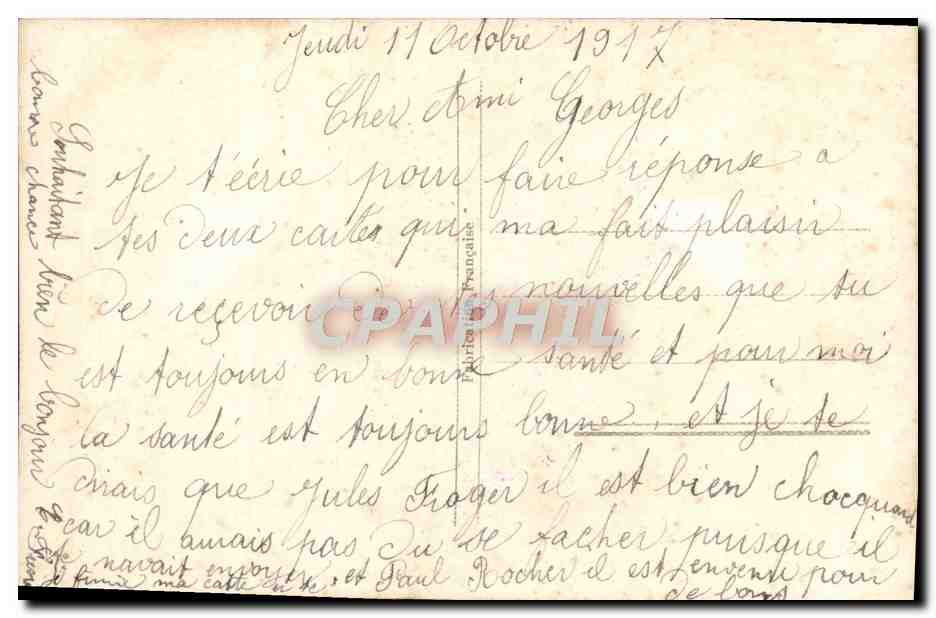 Jeudi 11 Octobre 1917
Cher Ami Georges
Je t'éérie pour faire réponse a
tes deux cartes qui ma fait plaisir
de reçevoir de tes nouvelles que tu
est toujours en bonne santé et pour moi
la santé est toujours bonne, et je te
dirais que Jules Froger il est bien chocquand
car il aurais pas du se facher puisque il
navait envoy et Paul Rocher il est envenu pour
de bons
Je finie ma carte en te
Souhaitant bien le bonjour et
bonne chance
Fabrication Française
CPAPHIL